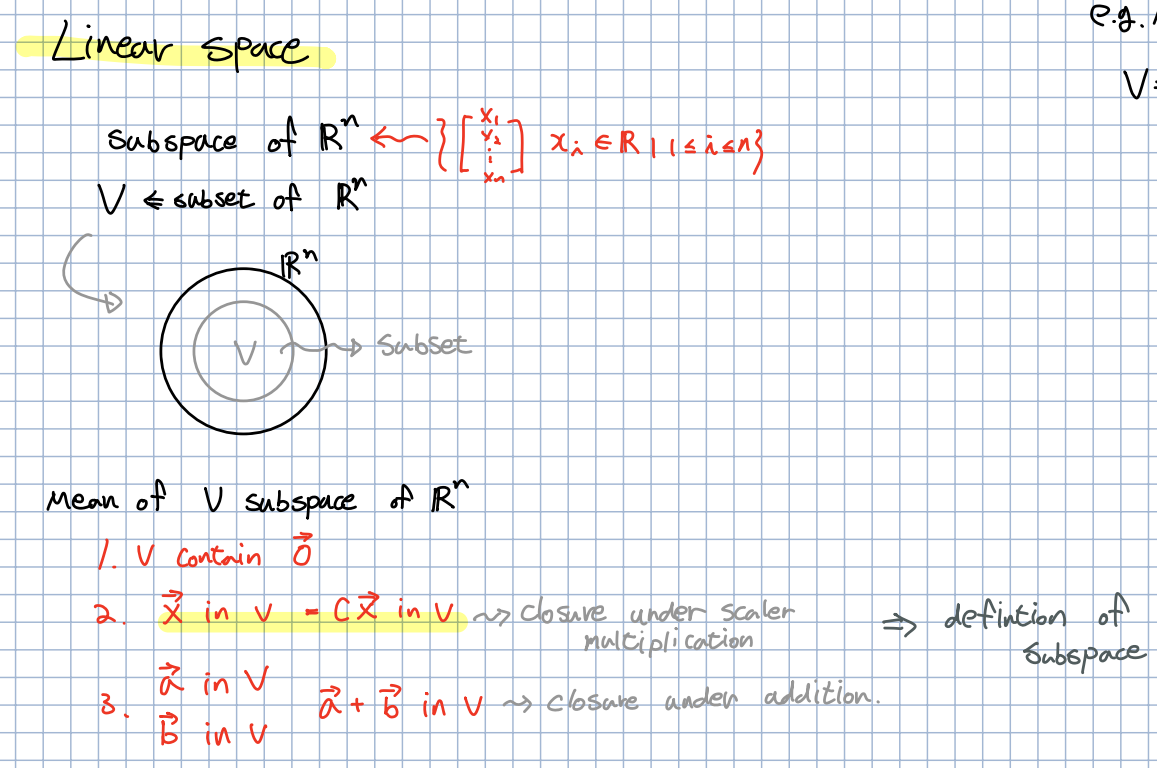 Linear space
e.g.
V =
subspace of ℝⁿ ← { [ x₁ x₂ ⋮ xₙ ] xᵢ ∈ ℝ | 1 ≤ i ≤ n }
V ⇐ subset of ℝⁿ
ℝⁿ
V → Subset
Mean of V subspace of ℝⁿ
1. V contain 0⃗
2. x⃗ in V = Cx⃗ in V ⤳ closure under scaler
multiplication
⇒ defintion of
subspace
3. a⃗ in V
b⃗ in V
a⃗ + b⃗ in V ⤳ closure under addition.